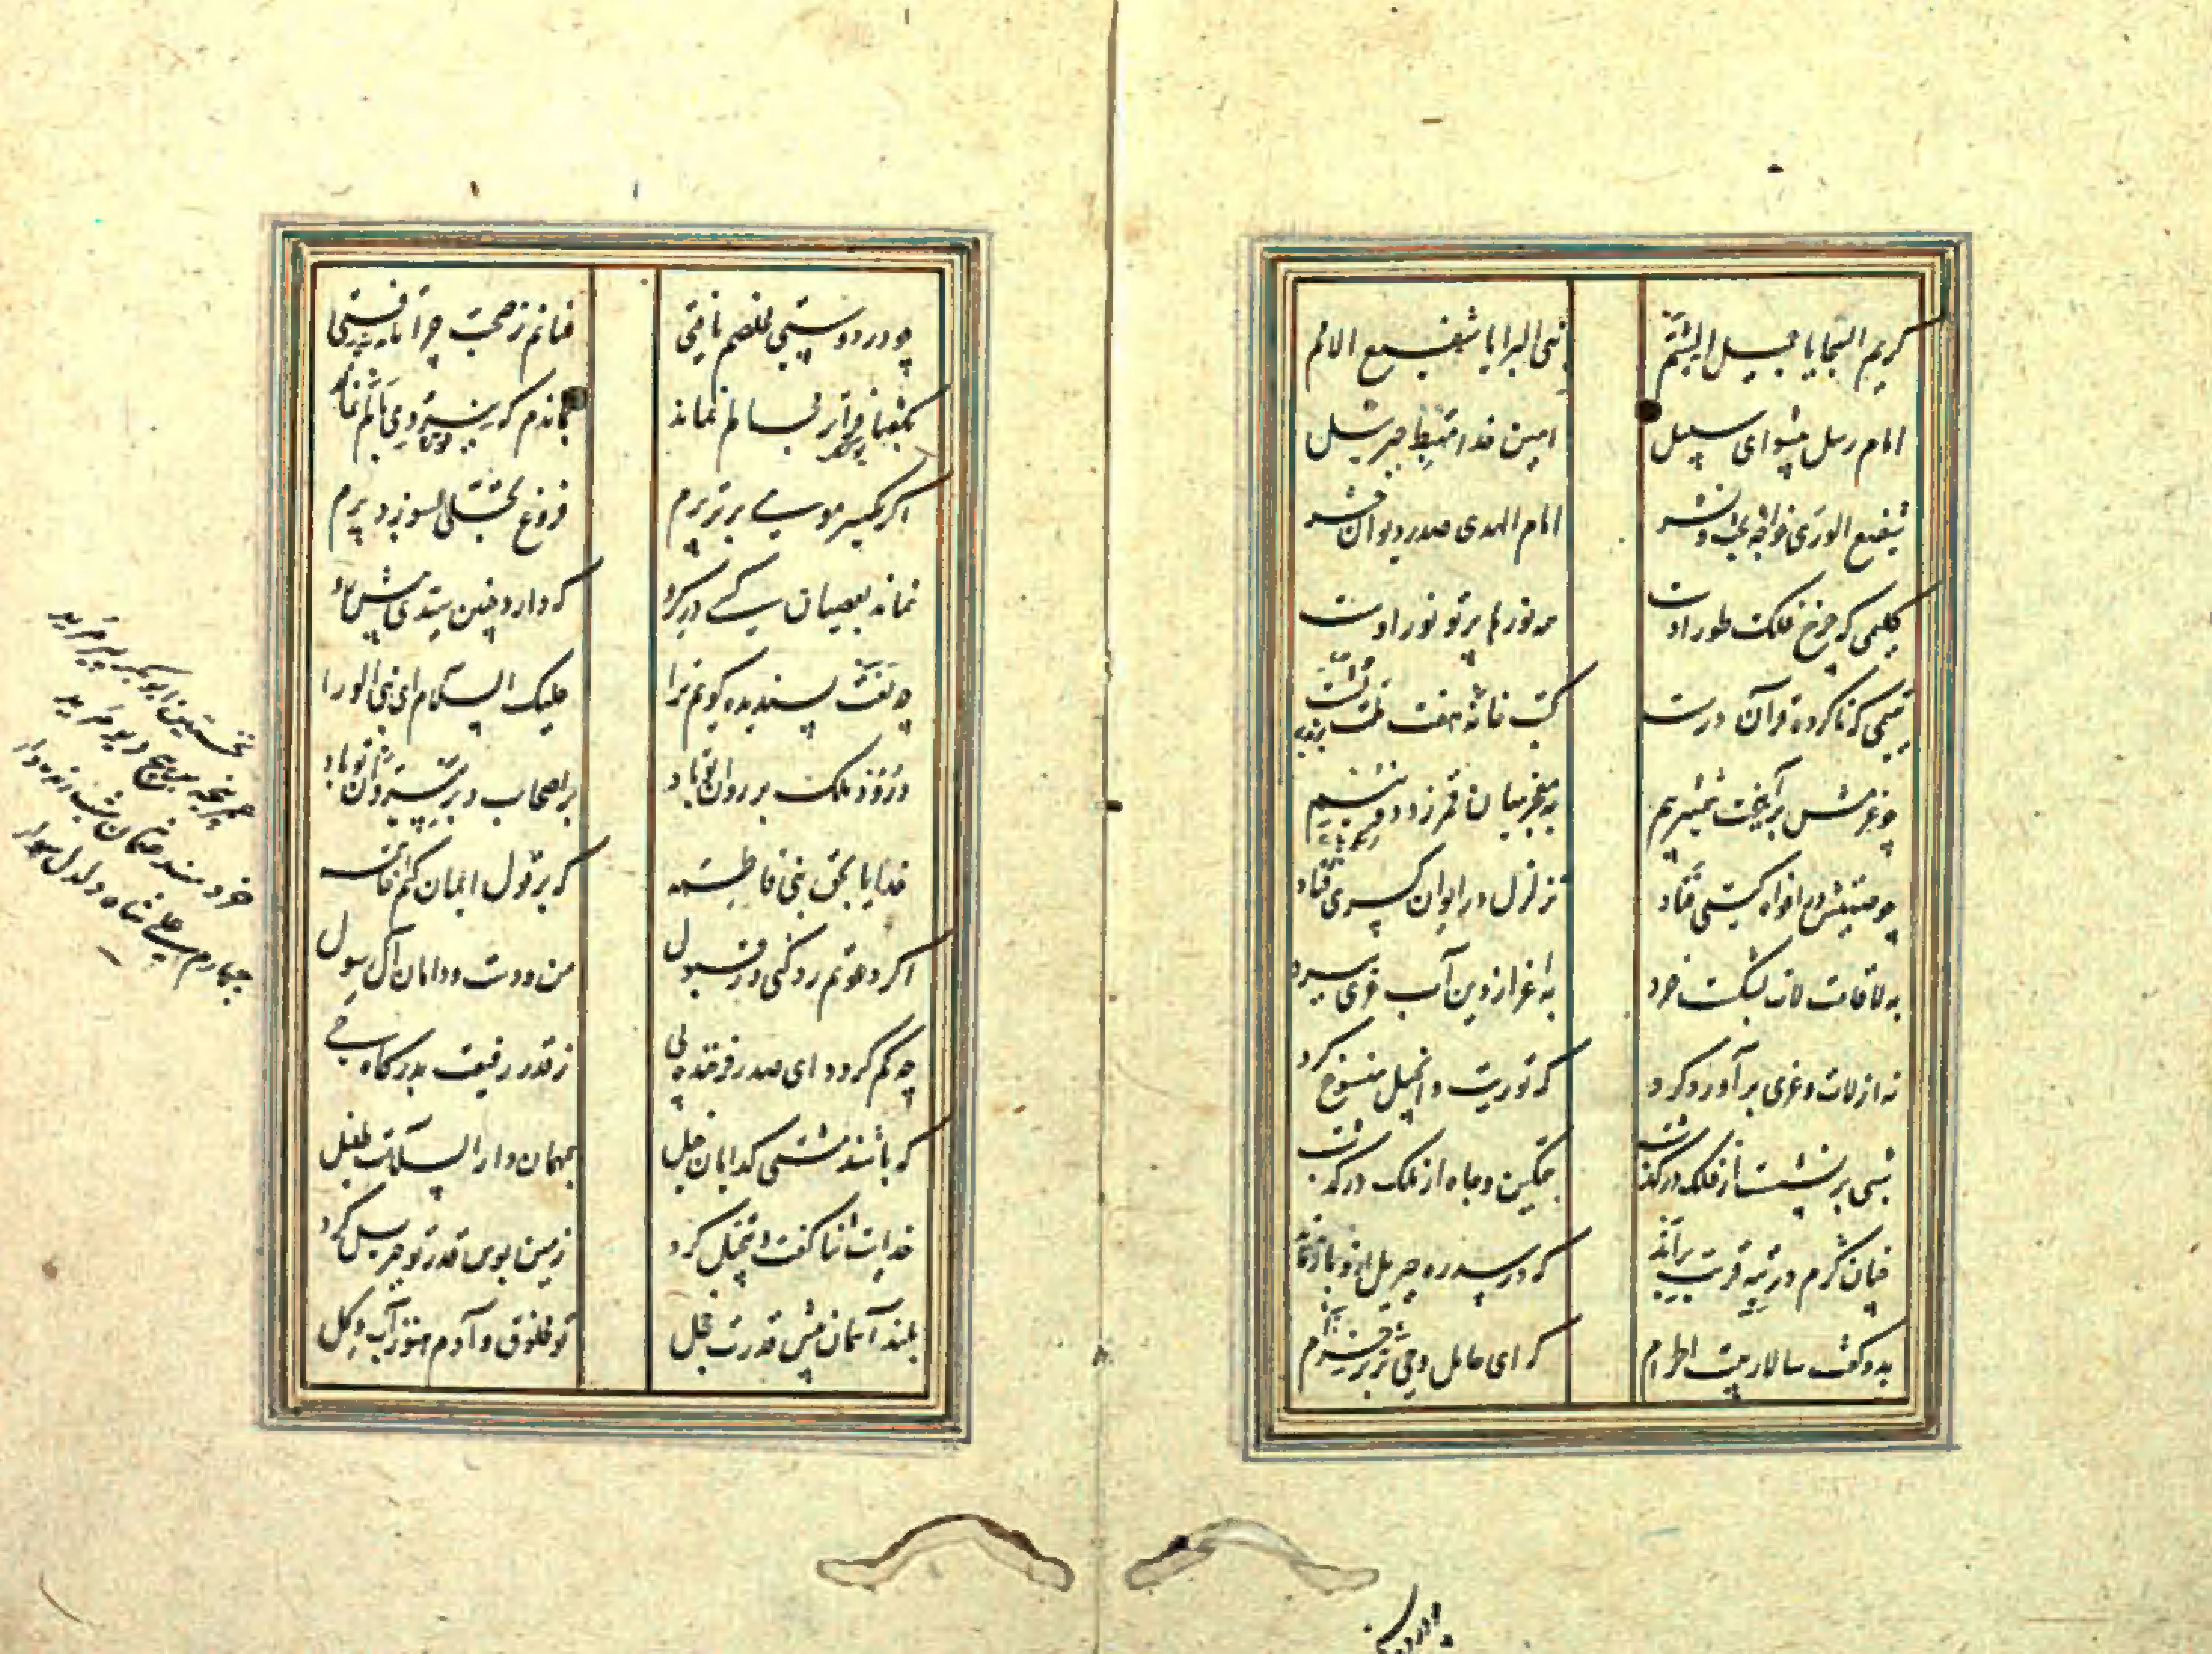 کریم السجایا جمیل الشیم نبی البرایا شفیع الامم
امام رسل پیشوای سبیل امین خدا مهبط جبرئیل
شفیع الوری خواجه بعث و نشر امام الهدی صدر دیوان حشر
کلیمی که چرخ فلک طور اوست همه نورها پرتو نور اوست
یتیمی که ناکرده قرآن درست کتب خانه هفت ملت بشست
چو عزمش برآهیخت شمشیر بیم به معجز میان قمر زد دو نیم
چو صیتش در افواه گیتی فتاد تزلزل در ایوان کسری فتاد
به لا قامت لات بشکست خرد به اعزاز دین آب عزی ببرد
نه از لات و عزی برآورد گرد که توریت و انجیل منسوخ کرد
شبی برنشست از فلک درگذشت بتمکین و جاه از ملک درگذشت
چنان گرم در تیه قربت براند که در سدره جبریل ازو بازماند
بدو گفت سالار بیت الحرام که ای حامل وحی برتر خرام
چو در دوستی مخلصم یافتی عنانم ز صحبت چرا تافتی
بگفتا فراتر مجالم نماند بماندم که نیروی بالم نماند
اگر یکسر موی برتر پرم فروغ تجلی بسوزد پرم
نماند بعصیان کسی در گرو که دارد چنین سیدی پیش رو
چه نعت پسندیده گویم ترا علیک السلام ای نبی الورا
درود ملک بر روان تو باد بر اصحاب و بر پیروان تو باد
خدایا بحق بنی فاطمه که بر قول ایمان کنم خاتمه
اگر دعوتم رد کنی ور قبول من و دست و دامان آل رسول
چه کم گردد ای صدر فرخنده پی ز قدر رفیعت بدرگاه حی
که باشند مشتی گدایان خیل بمهمان دار السلامت طفیل
خدایت ثنا گفت و تبجیل کرد زمین بوس قدر تو جبریل کرد
بلند آسمان پیش قدرت خجل تو مخلوق و آدم هنوز آب و گل
نخستین ابوبکر پیر مرید
عمر پنجه بر پیچ دیو مرید
خردمند عثمان شب زنده دار
چهارم علی شاه دلدل سوار